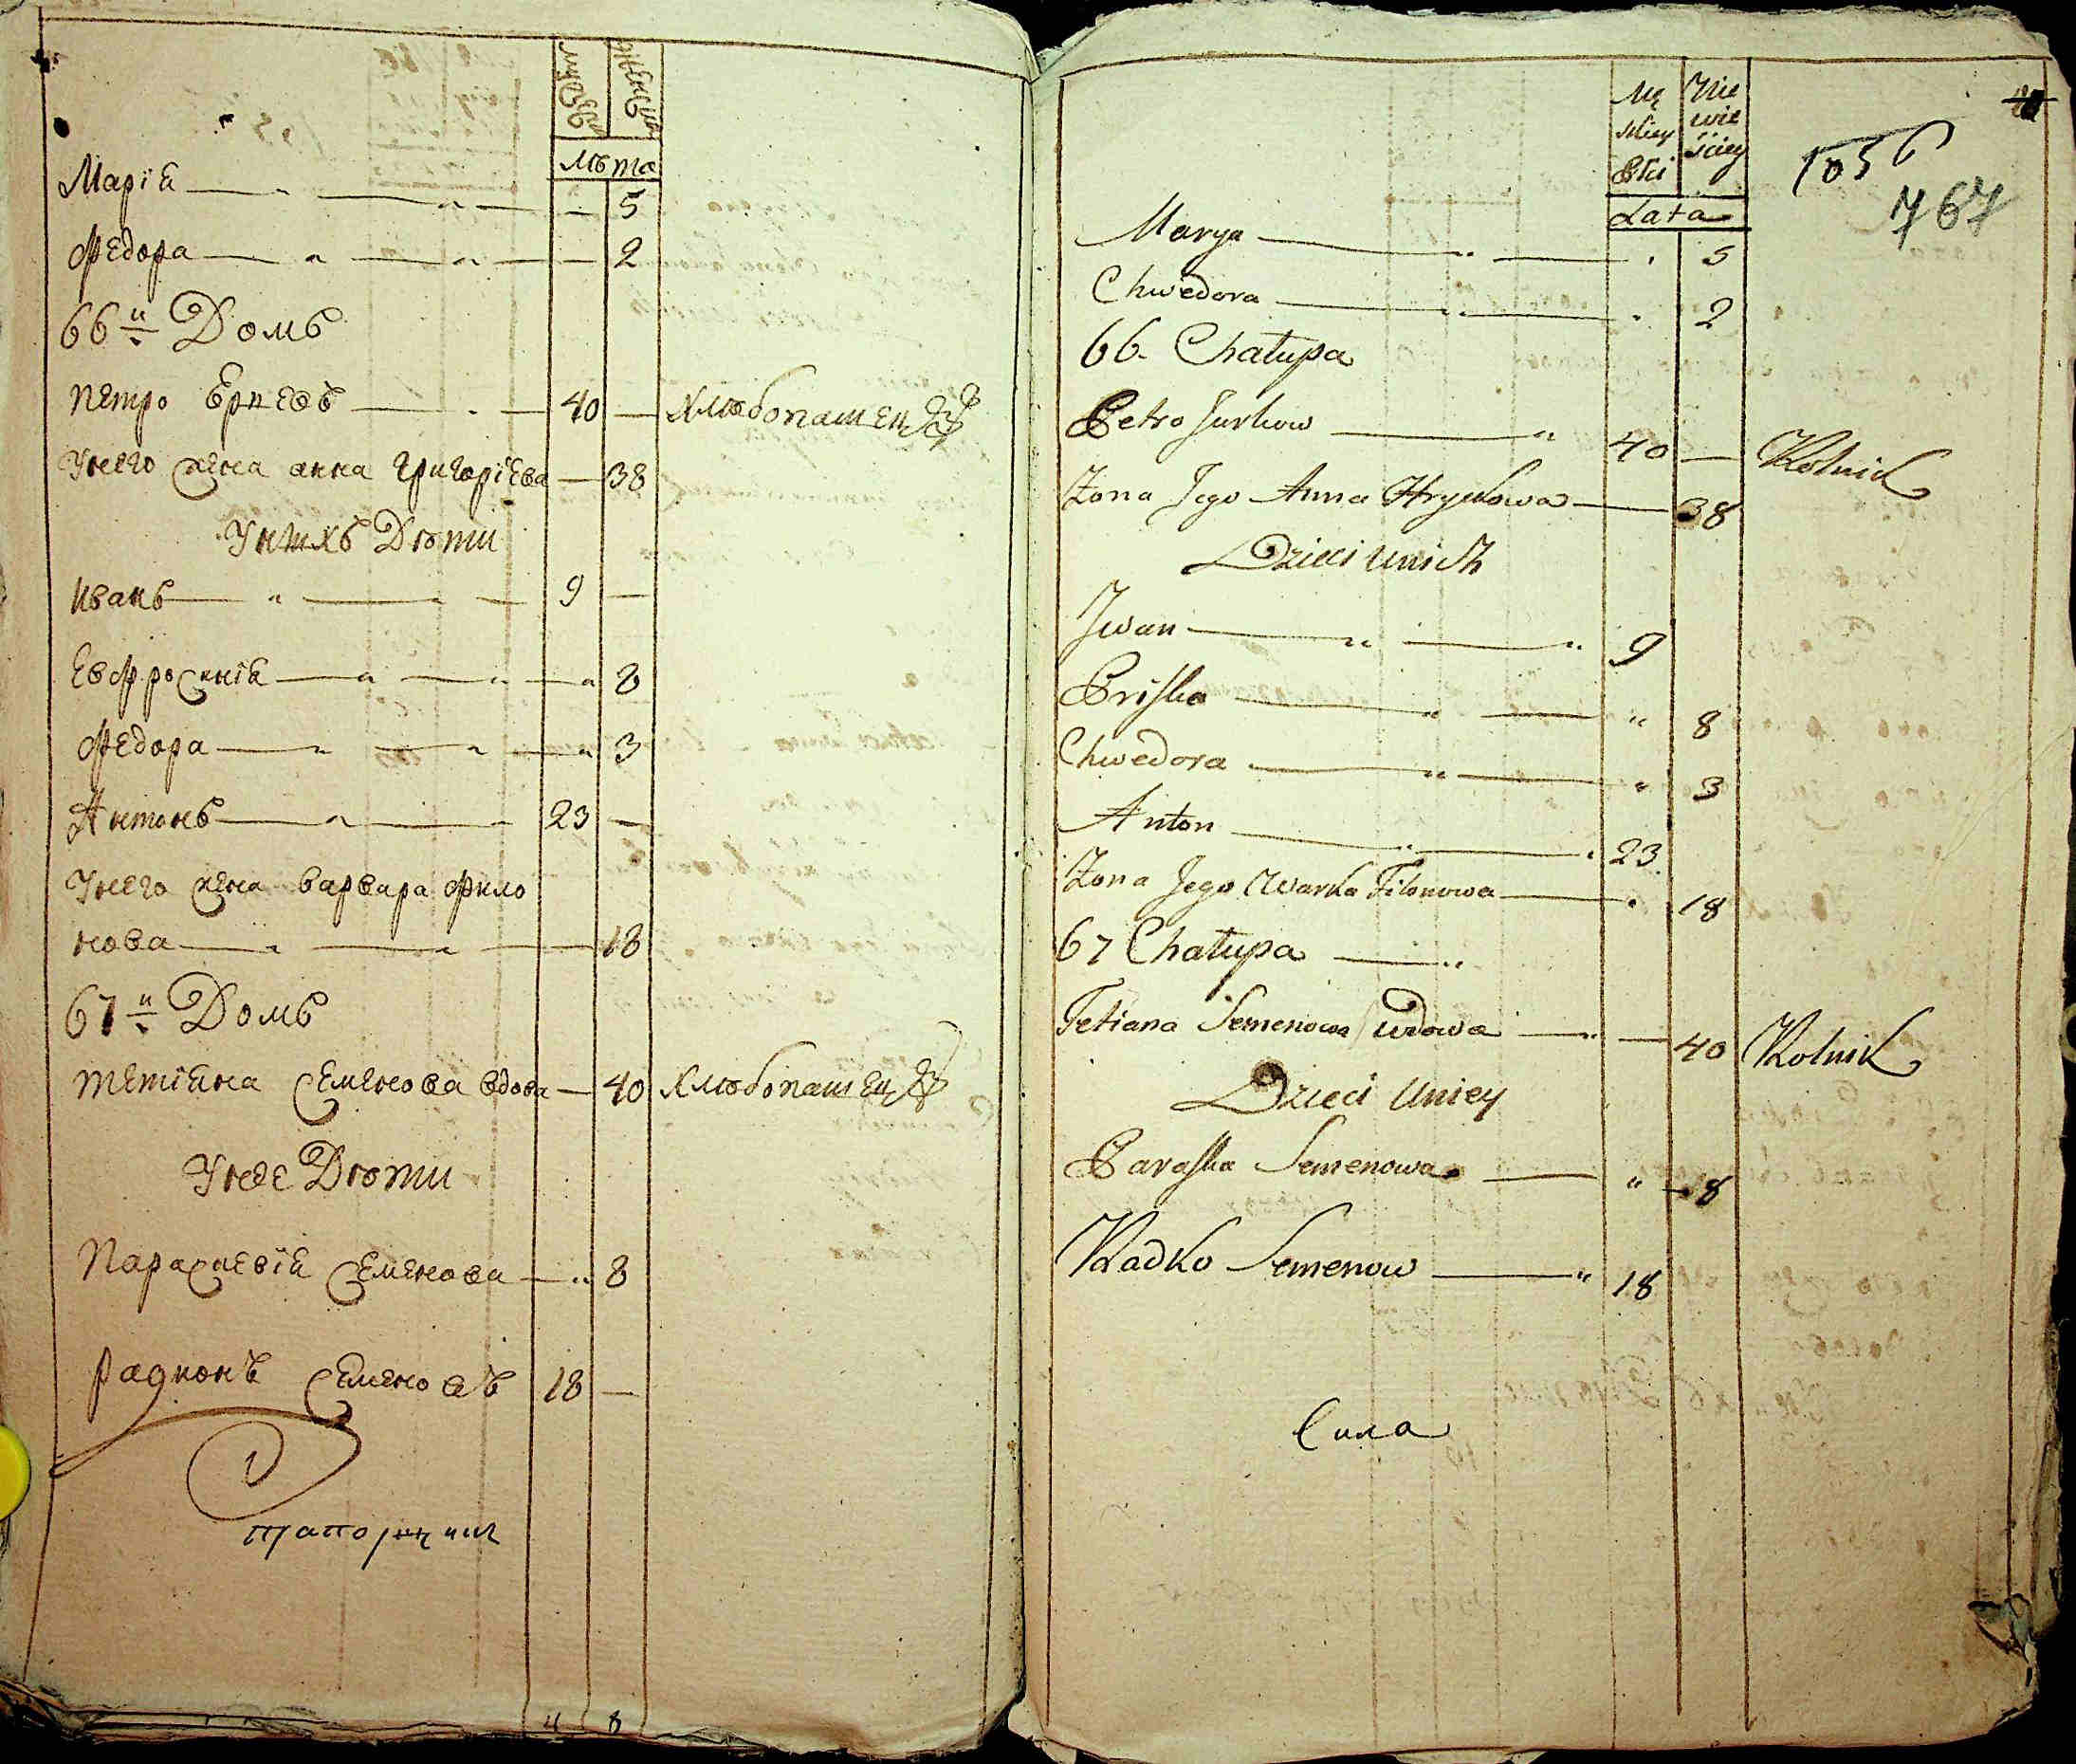 мужески
женски
Лѣта
Марїя 5
Федора 2
66й Домъ
Петро Юрковъ 40 — хлѣбопашецъ
У него жена анна григорїева — 38
У нихъ Дѣти
Иванъ 9 —
Евфросинїя 8
Федора 3
Антонъ 23 —
У него жена варвара Фило
нова 18
67й Домъ
Тетїяна Семенова вдова — 40 хлѣбопашецъ
У нее Дѣти
Параскевїя Семенова 8
Радионъ Семеновъ 18 —
4 8
Mę
skiey
Płci
Nie
wie
ściey
Lata
1056
767
Marya 5
Chwedora 2
66. Chałupa
Petro Jurkow 40 — Rolnik
Zona Jego Anna Hryckowa 38
Dzieci u nich
Jwan 9
Priska 8
Chwedora 3
Anton 23
Zona Jego Warka Filonowa 18
67 Chałupa
Tetiana Semenowa wdowa — 40 Rolnik
Dzieci u niey
Paraska Semenowa 8
Radko Semenow 18
Сила